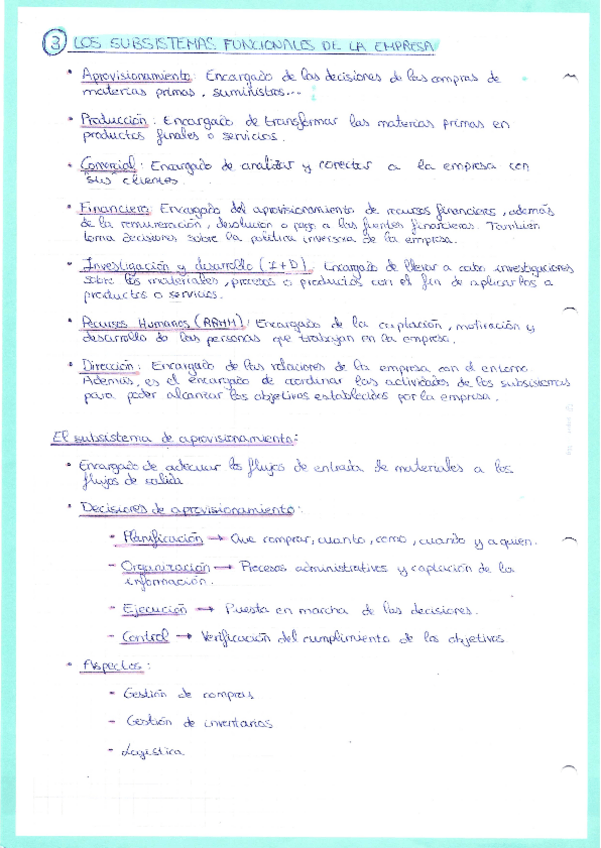 3 LOS SUBSISTEMAS FUNCIONALES DE LA EMPRESA
• Aprovisionamiento: Encargado de las decisiones de las compras de
materias primas, suministros...
• Producción: Encargado de transformar las materias primas en
productos finales o servicios.
• Comercial: Encargado de analizar y conectar a la empresa con
sus clientes.
• Financiero: Encargado del aprovisionamiento de recursos financieros, además
de la remuneración, devolución o pago a las fuentes financieras. También
toma decisiones sobre la política inversora de la empresa.
• Investigación y desarrollo (I+D): Encargado de llevar a cabo investigaciones
sobre los materiales, procesos o productos con el fin de aplicarlos a
productos o servicios.
• Recursos Humanos (RRHH): Encargado de la captación, motivación y
desarrollo de las personas que trabajan en la empresa.
• Dirección: Encargado de las relaciones de la empresa con el entorno.
Además, es el encargado de coordinar las actividades de los subsistemas
para poder alcanzar los objetivos establecidos por la empresa.
El subsistema de aprovisionamiento:
• Encargado de adecuar los flujos de entrada de materiales a los
flujos de salida
• Decisiones de aprovisionamiento:
- Planificación → Que comprar, cuanto, como, cuando y a quien.
- Organización → Procesos administrativos y captación de la
información.
- Ejecución → Puesta en marcha de las decisiones.
- Control → Verificación del cumplimiento de los objetivos
• Aspectos:
- Gestión de compras
- Gestión de inventarios
- Logística